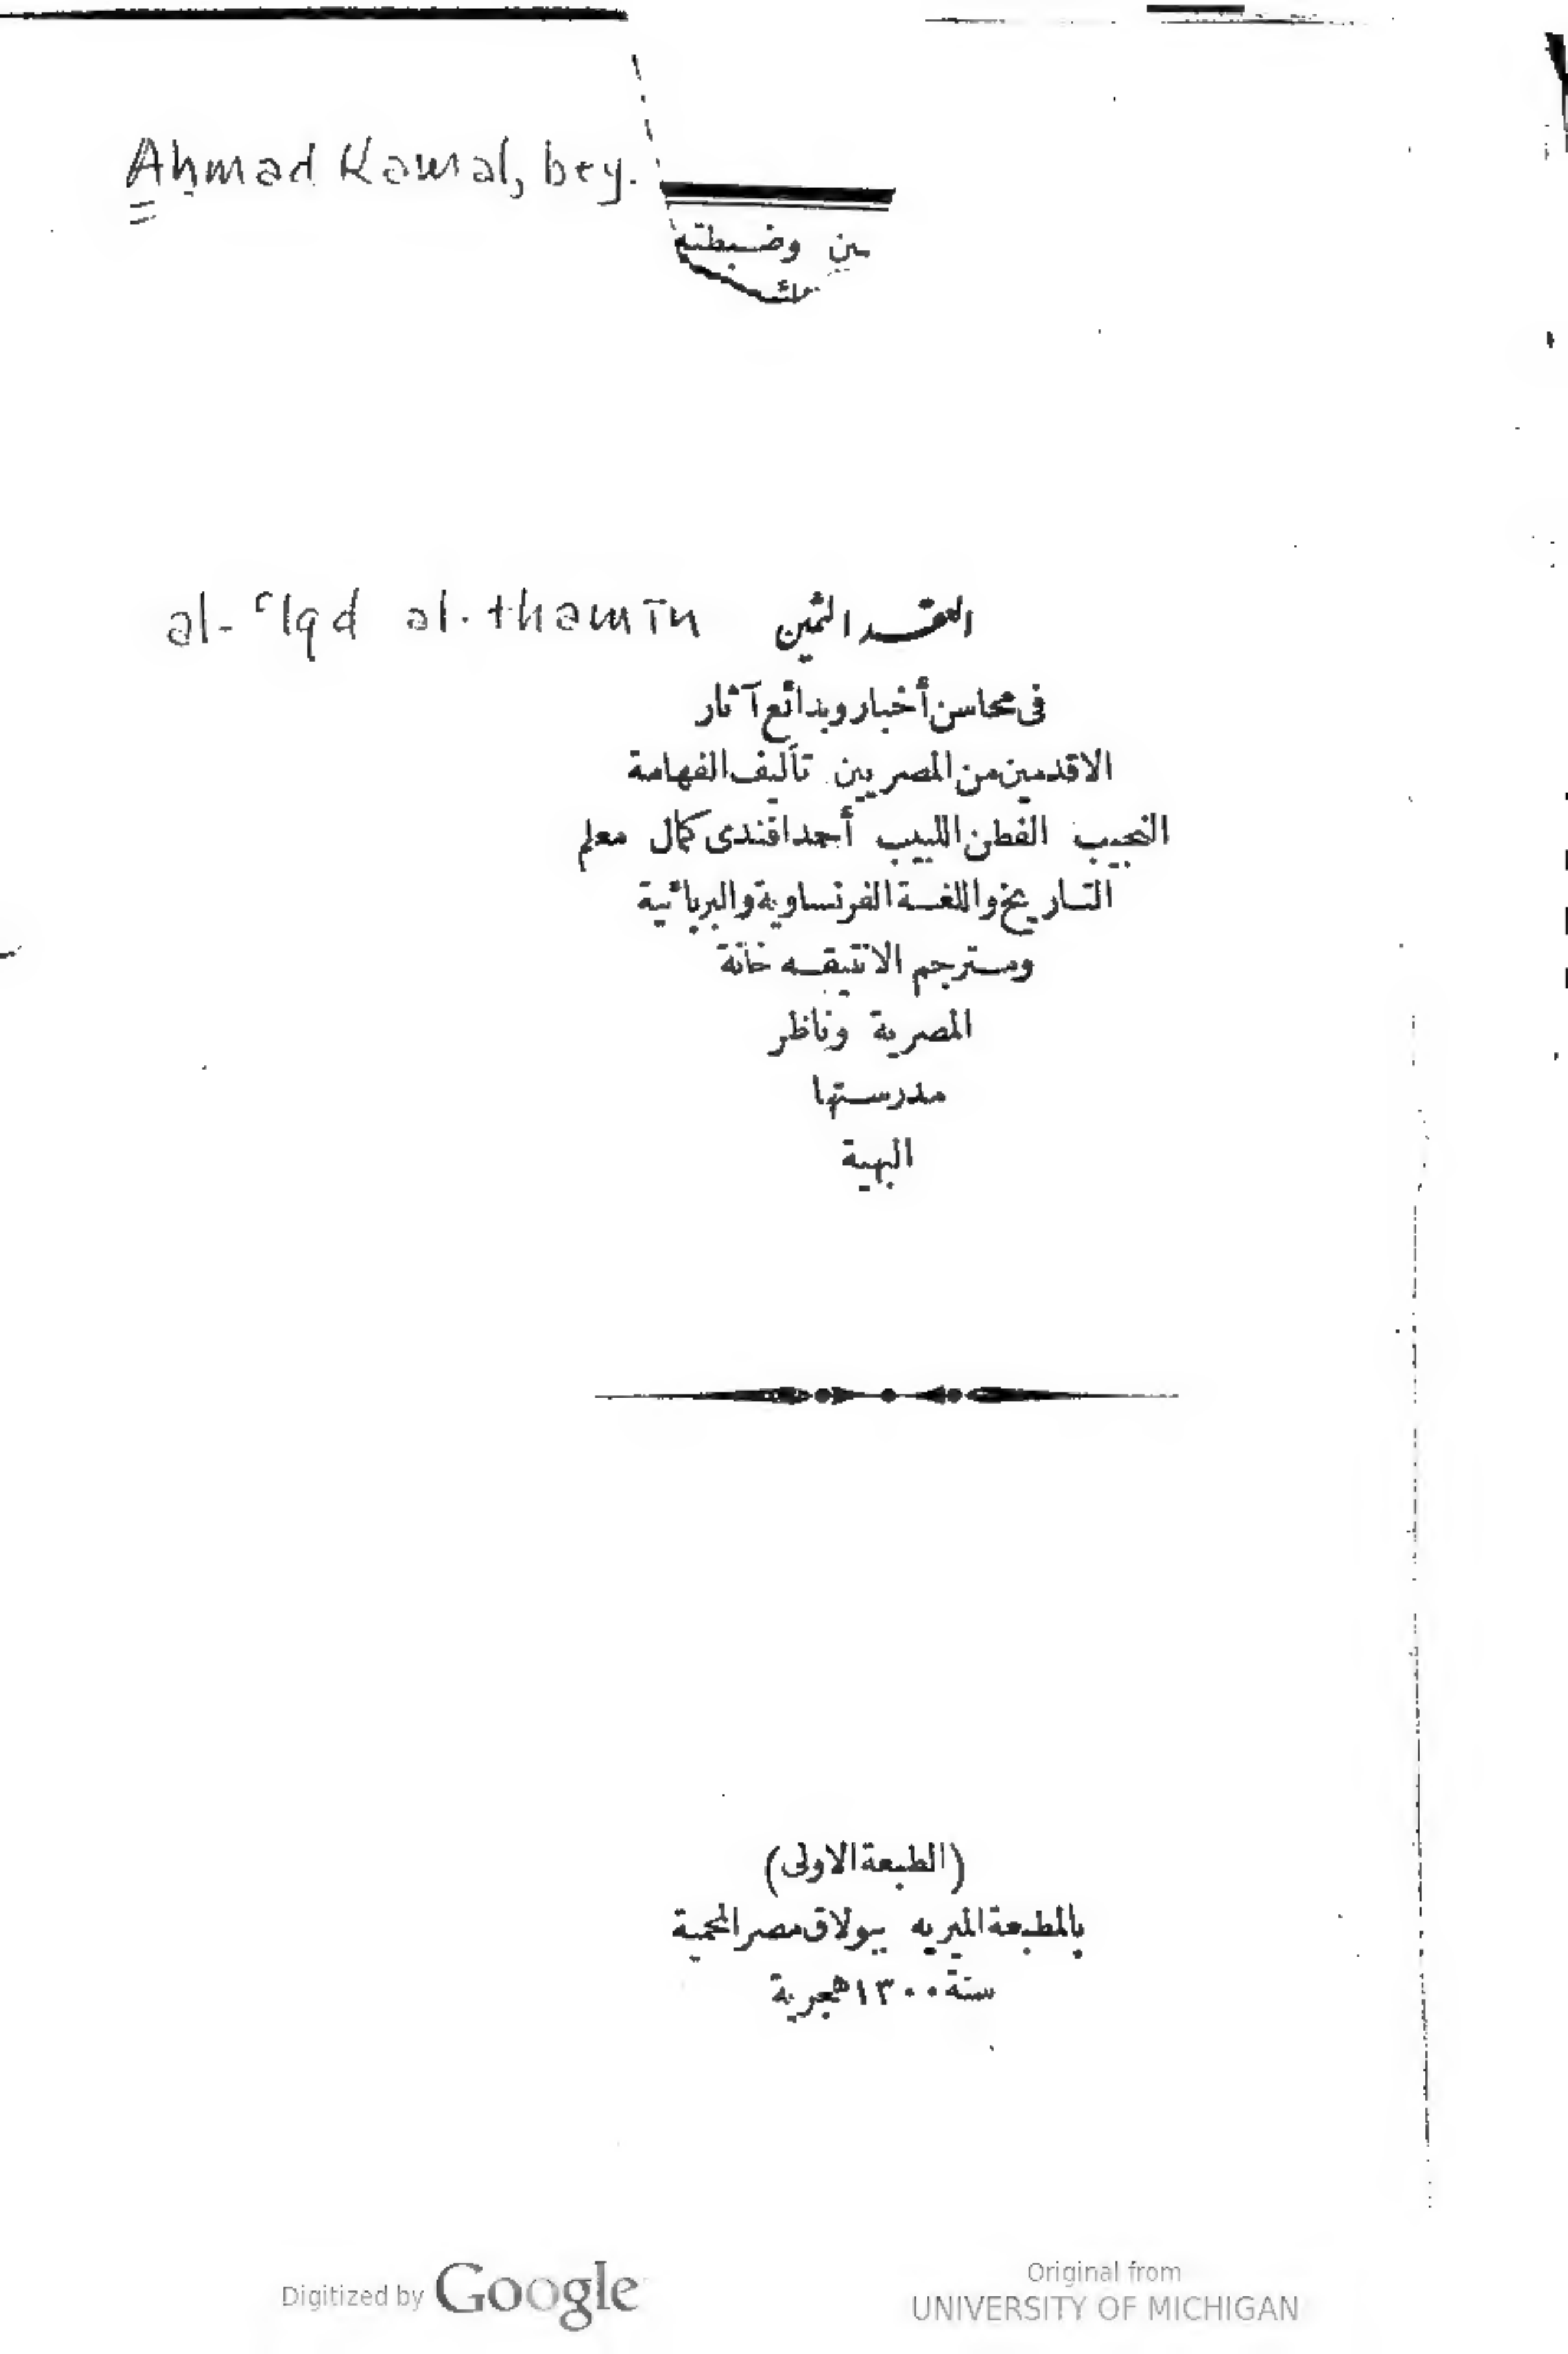 Aḥmad Kamal, bey.
ين وضبطته
العقد الثمين
al-ʿIqd al-thamīn
فى محاسن أخبار وبدائع آثار
الاقدمين من المصريين تأليف الفهامة
النجيب الفطن اللبيب أحمد افندى كمال معلم
التاريخ واللغة الفرنساوية والبربائية
ومترجم الانتيقه خانة
المصرية وناظر
مدرستها
البهية
(الطبعة الاولى)
بالمطبعة الميريه ببولاق مصر المحمية
سنة ١٣٠٠ هجرية
Digitized by Google
Original from
UNIVERSITY OF MICHIGAN